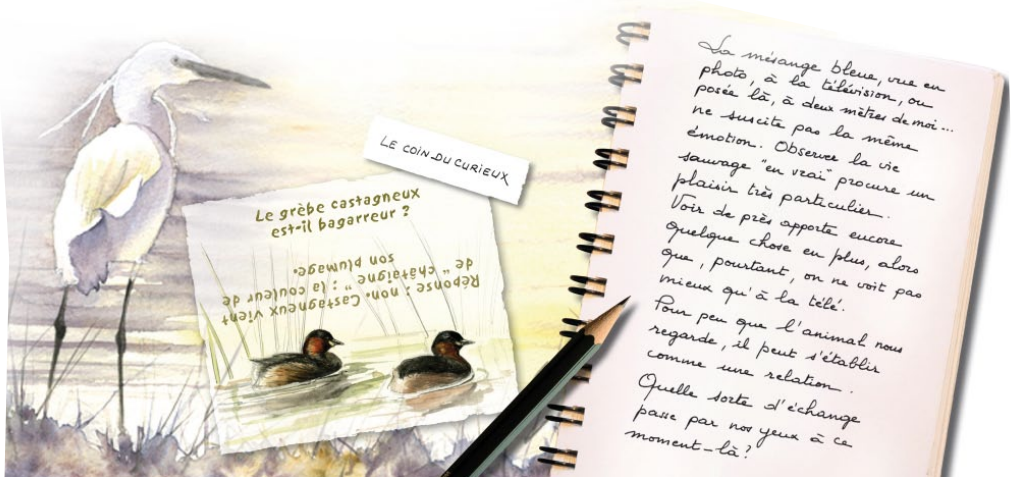 LE COIN DU CURIEUX
Le grèbe castagneux
est-il bagarreur ?
Réponse : non. Castagneux vient
de " châtaigne " : la couleur de
son plumage.
La mésange bleue, vue en
photo, à la télévision, ou
posée là, à deux mètres de moi...
ne suscite pas la même
émotion. Observer la vie
sauvage "en vrai" procure un
plaisir très particulier.
Voir de près apporte encore
quelque chose en plus, alors
que, pourtant, on ne voit pas
mieux qu'à la télé.
Pour peu que l'animal nous
regarde, il peut s'établir
comme une relation.
Quelle sorte d'échange
passe par nos yeux à ce
moment-là?